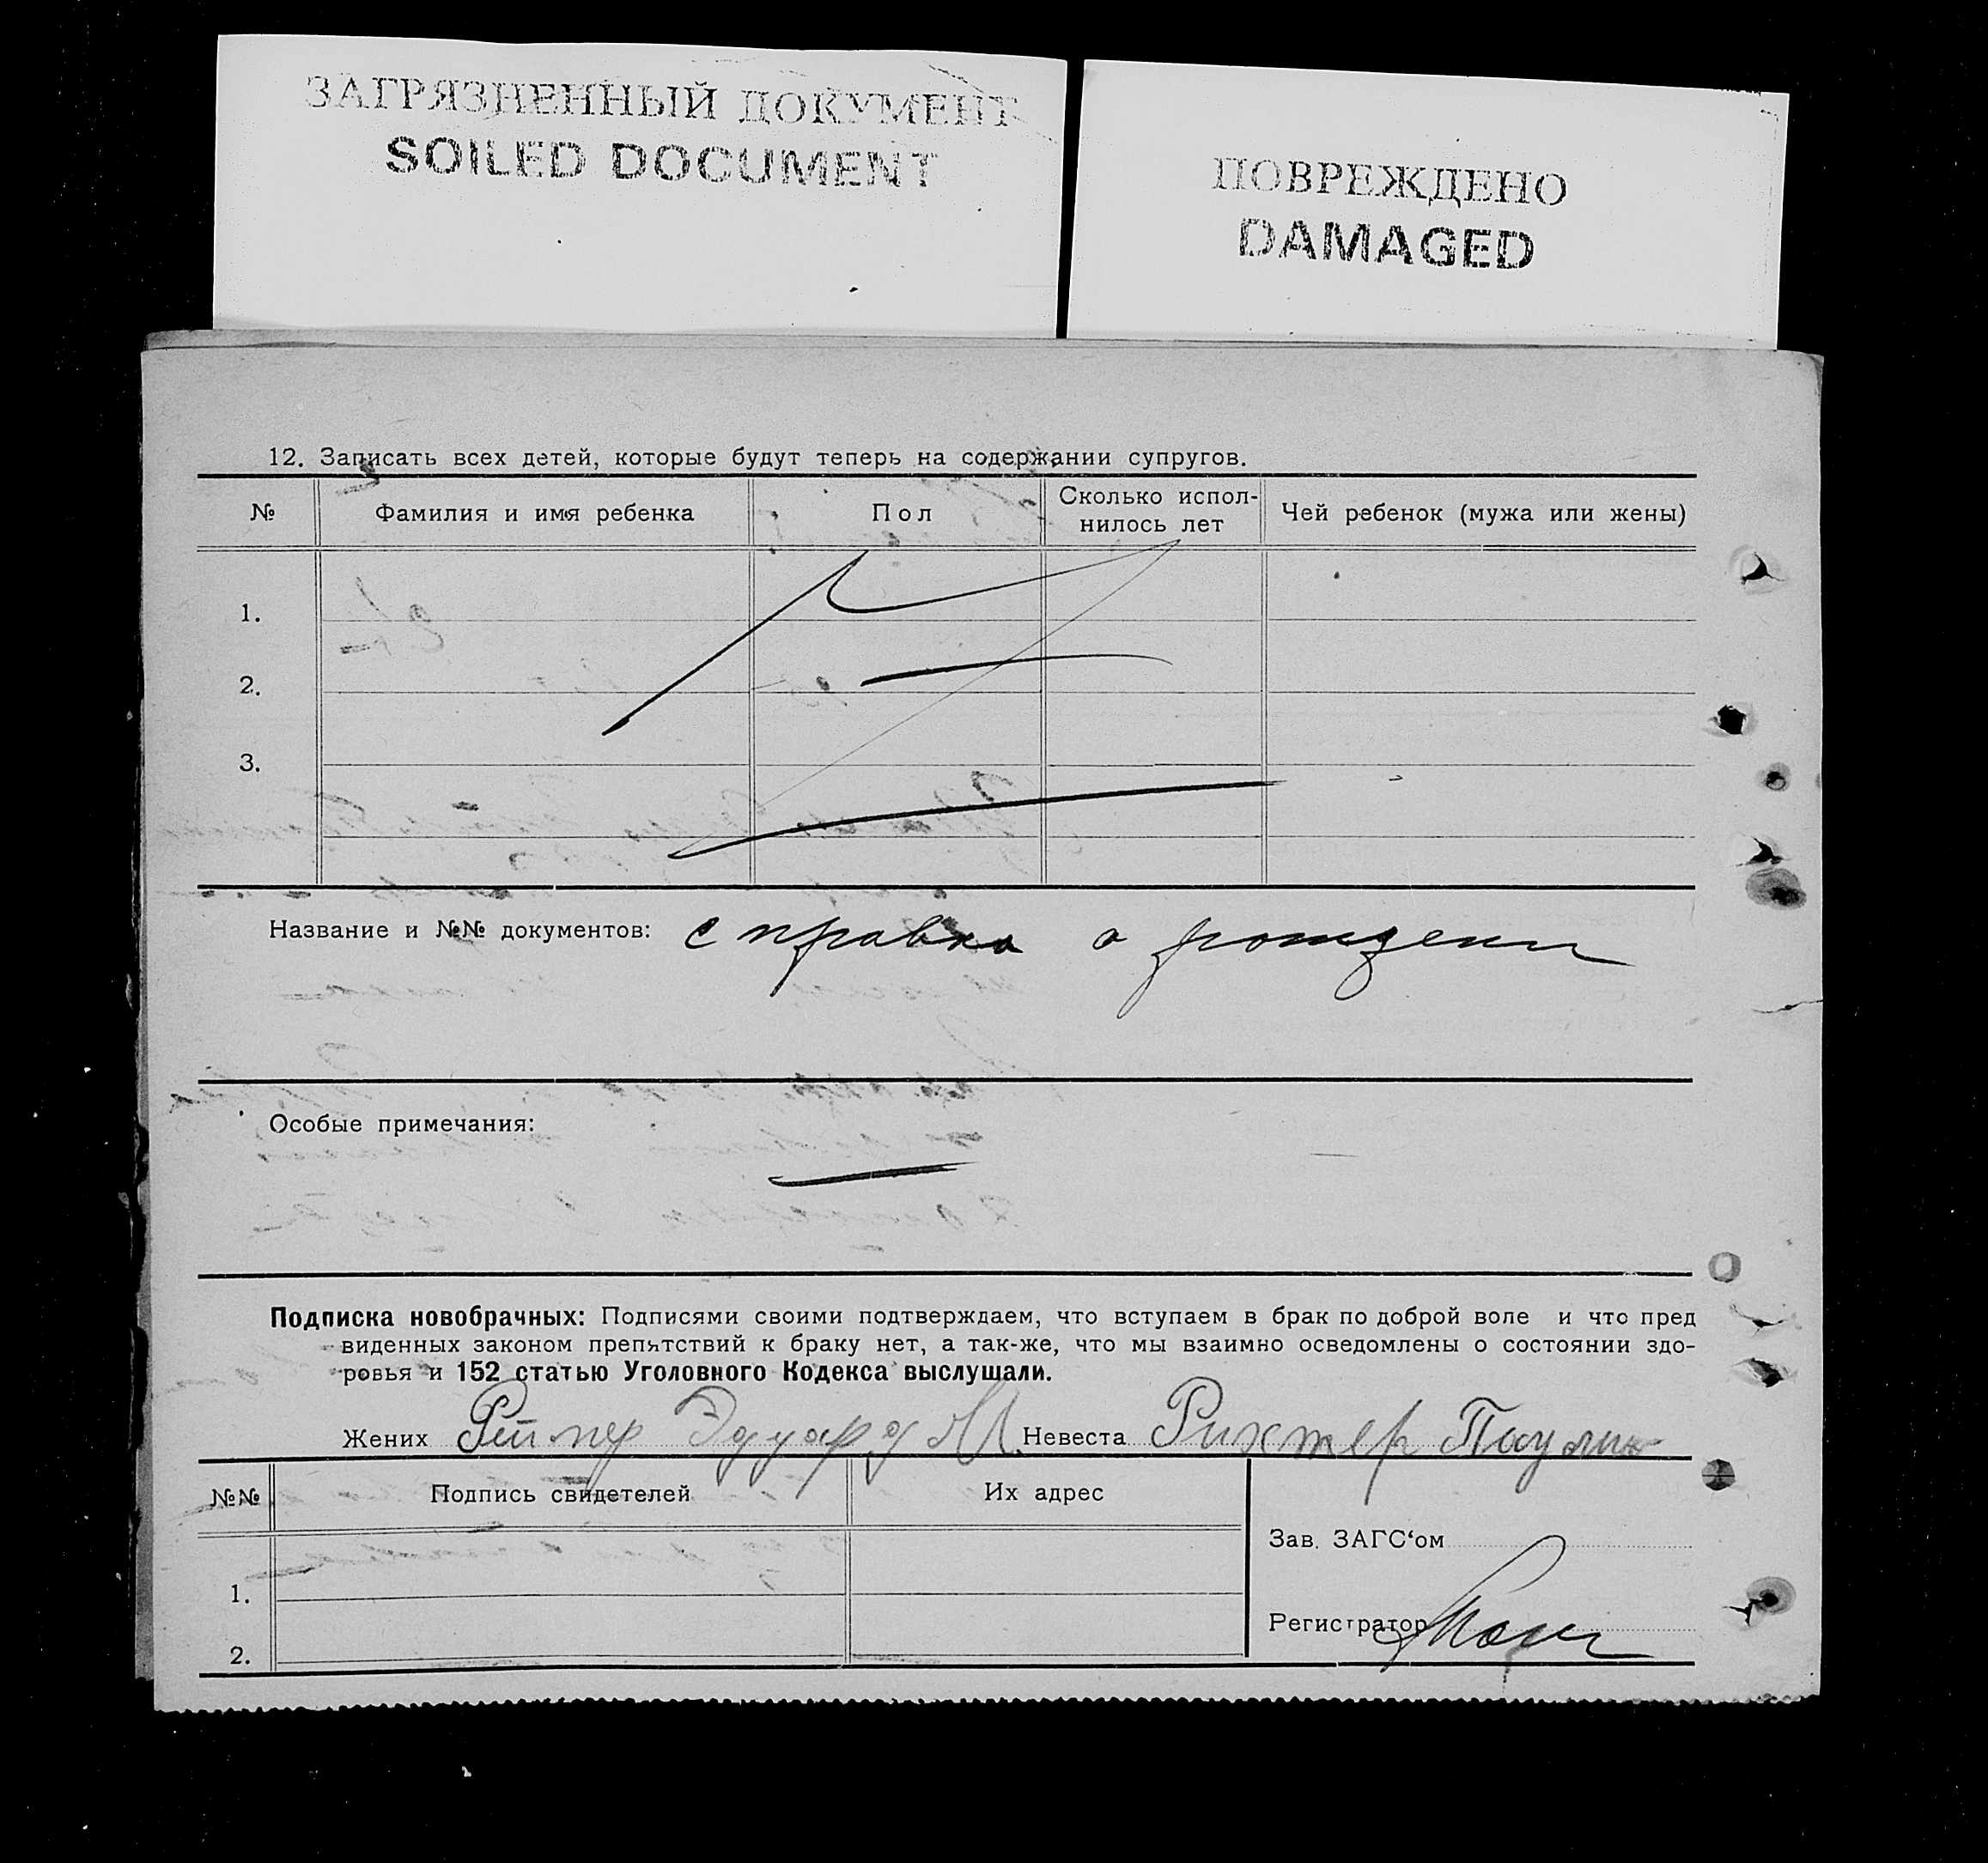 ЗАГРЯЗНЕННЫЙ ДОКУМЕНТ
SOILED DOCUMENT
ПОВРЕЖДЕНО
DAMAGED
12. Записать всех детей, которые будут теперь на содержании супругов.
№ Фамилия и имя ребенка Пол Сколько испол-нилось лет Чей ребенок (мужа или жены)
1.
2.
3.
Название и №№ документов: справка о рождении
Особые примечания:
Подписка новобрачных: Подписями своими подтверждаем, что вступаем в брак по доброй воле и что пред
виденных законом препятствий к браку нет, а так-же, что мы взаимно осведомлены о состоянии здо-
ровья и 152 статью Уголовного Кодекса выслушали.
Жених Реймер Эдуард Невеста Рихтер Паулин
№№ Подпись свидетелей Их адрес
Зав. ЗАГС‘ом
1.
Регистратор
2.